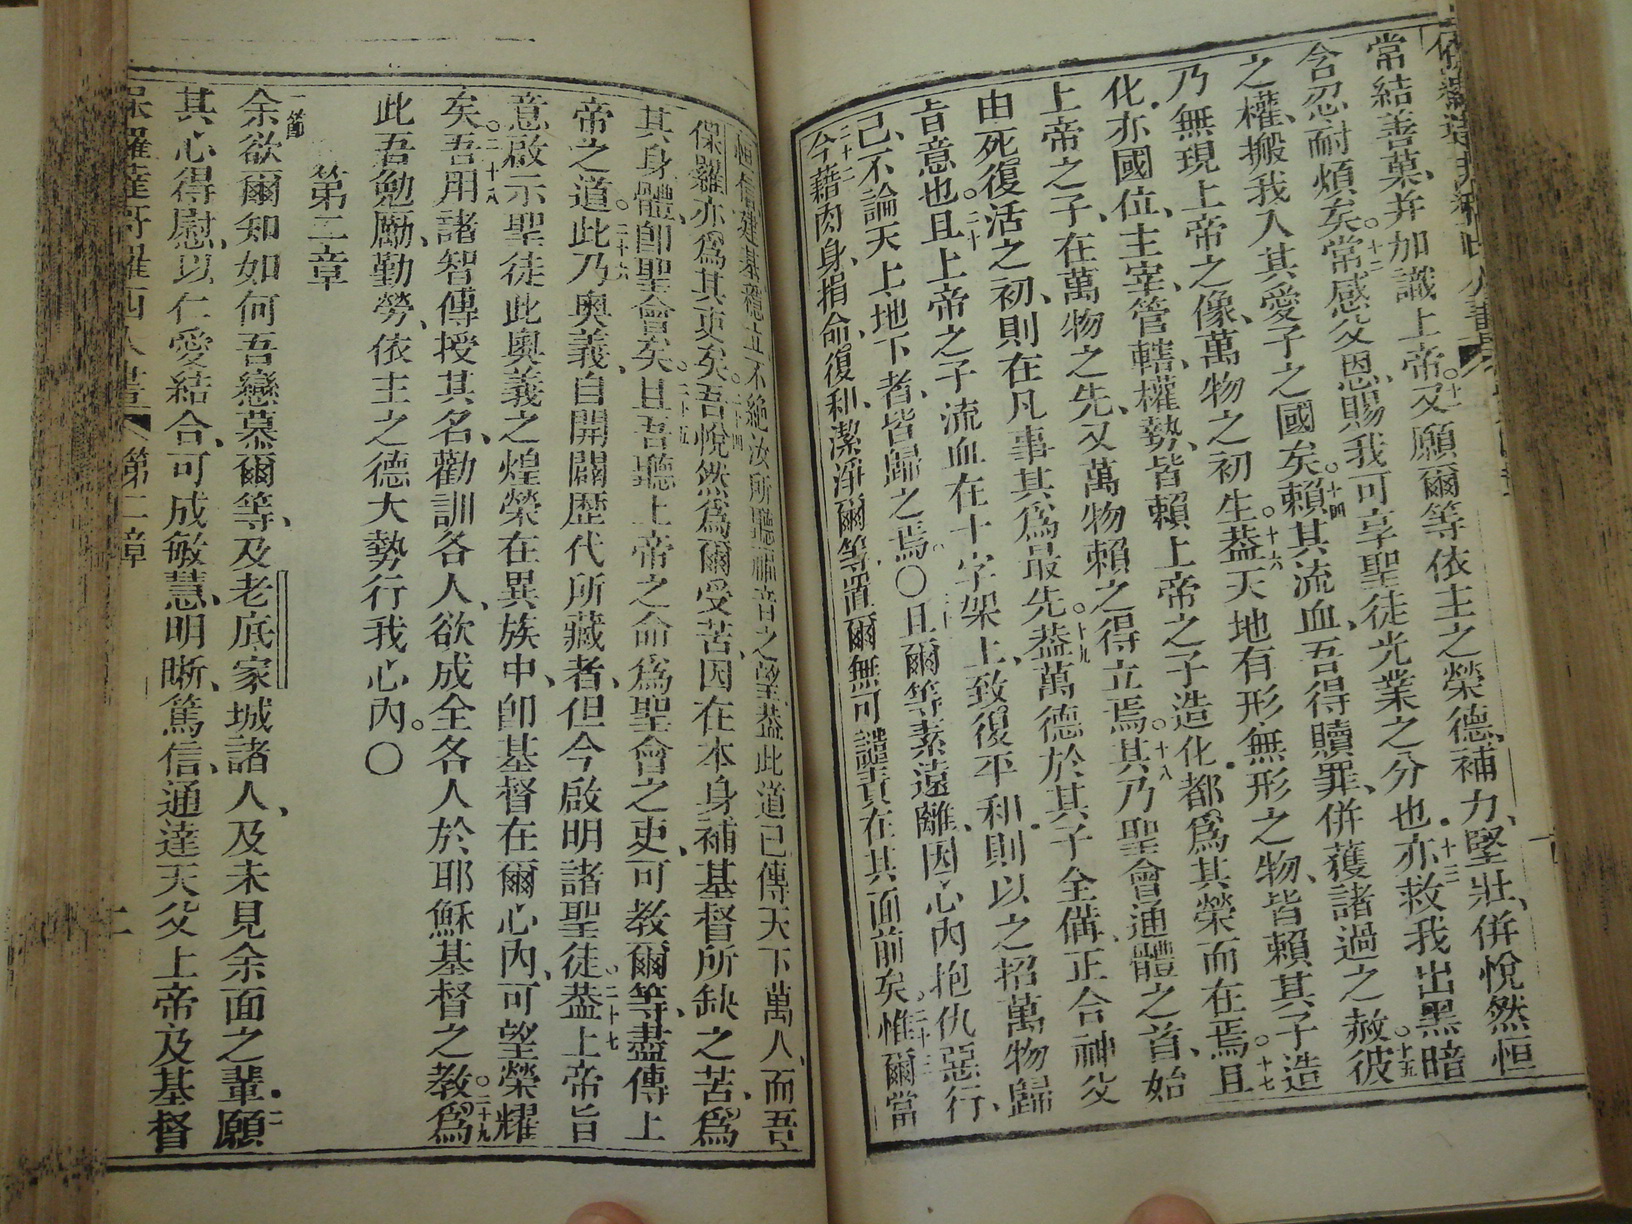 常結善菓、并加識上帝、○十一又願爾等依主之榮德、補力、堅壯、併悅然恒
含忍耐煩矣、○十二常感父恩、賜我可享聖徒光業之分也、十三亦救我出黑暗
之權、搬我入其愛子之國矣、○十四賴其流血、吾得贖罪、併獲諸過之赦、○十五彼
乃無現上帝之像、萬物之初生、○十六葢天地有形無形之物、皆賴其子造
化、亦國位、主宰、管轄、權勢、皆賴上帝之子造化、都爲其榮而在焉、○十七且
上帝之子、在萬物之先、又萬物賴之得立焉、○十八其乃聖會通體之首、始
由死復活之初、則在凡事其爲最先、○十九葢萬德於其子全備、正合神父
旨意也、○二十且上帝之子流血在十字架上、致復平和、則以之招萬物歸
己、不論天上地下者、皆歸之焉。○且爾等素遠離、因心內抱仇惡行、
二十二今藉肉身、捐命、復和、潔淨爾等、置爾無可譴責在其面前矣、○二十三惟爾當
恒信、建基、穩立、不絶汝所聽福音之望、葢此道已傳天下萬人、而吾
保羅亦爲其吏矣、○二十四吾悅然爲爾受苦、因在本身補基督所缺之苦、爲
其身體、卽聖會矣、○二十五且吾聽上帝之命爲聖會之吏、可教爾等、盡傳上
帝之道、○二十六此乃奧義、自開闢歷代所藏者、但今啟明諸聖徒、○二十七葢上帝旨
意啟示聖徒此奧義之煌榮在異族中、卽基督在爾心內、可望榮耀
矣、○二十八吾用諸智傳授其名、勸訓各人、欲成全各人於耶穌基督之教、○二十九爲
此吾勉勵、勤勞、依主之德大勢行我心內。○
第二章
一節余欲爾知如何吾戀慕爾等、及老底家城諸人、及未見余面之輩、二願
其心得慰、以仁愛結合、可成敏慧、明晰、篤信、通達天父上帝及基督
保羅達哥羅西人書 第二章 二